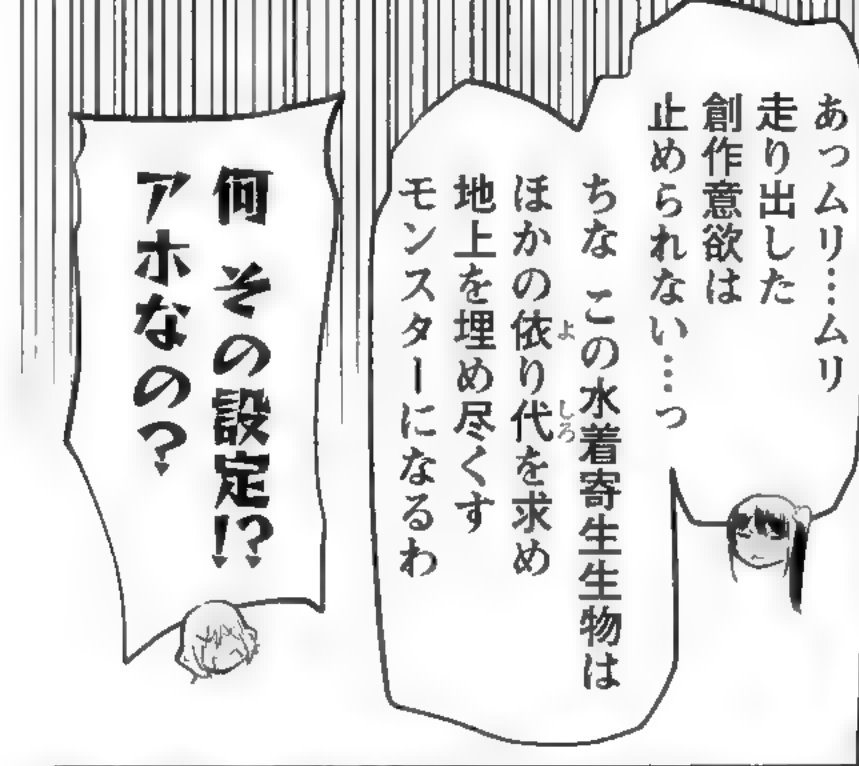 あっムリ…ムリ
走り出した
創作意欲は
止められない…っ
ちな この水着寄生生物は
ほかの依り代を求め
地上を埋め尽くす
モンスターになるわ
何 その設定!?
アホなの?